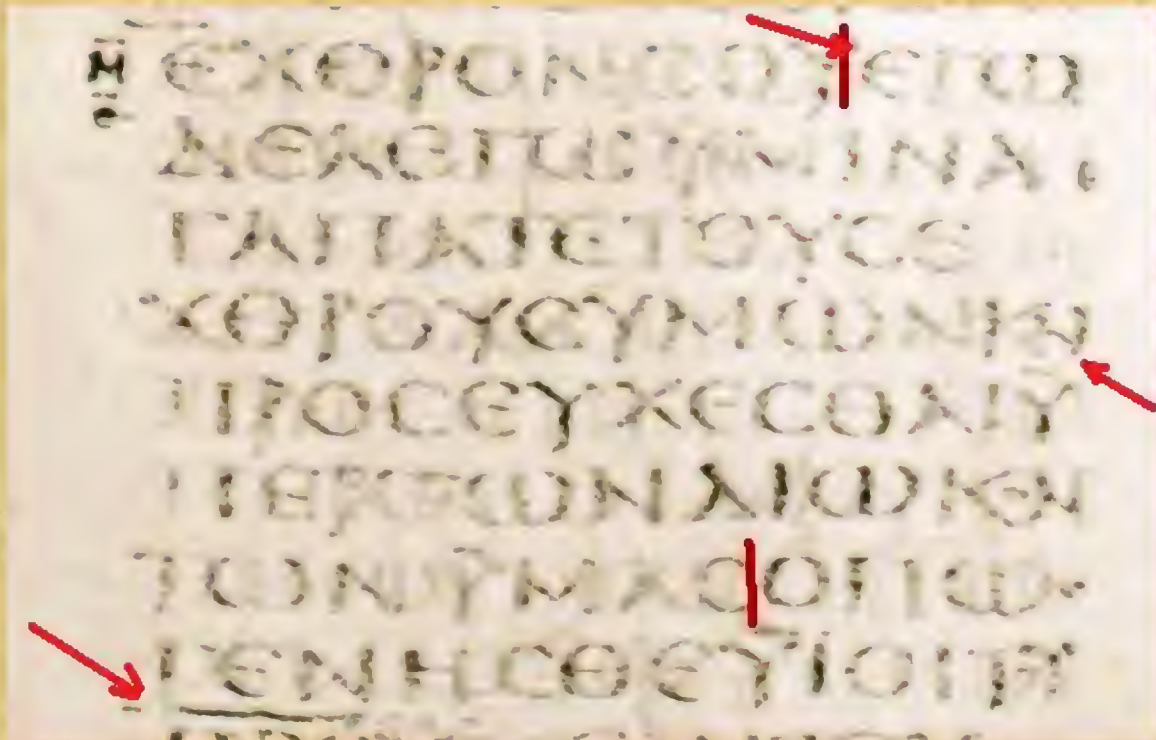 ΕΧΘΡΟΝϹΟΥΕΓΩ
ΔΕΛΕΓΩΥΜΙΝΑ
ΓΑΠΑΤΕΤΟΥϹΕ
ΧΘΡΟΥϹΥΜΩΝΚΑΙ
ΠΡΟϹΕΥΧΕϹΘΑΙΥ
ΠΕΡΤΩΝΔΙΩΚΟΝ
ΤΩΝΥΜΑϹΟΠΩϹ
ΓΕΝΗϹΘΕΥΙΟΙ